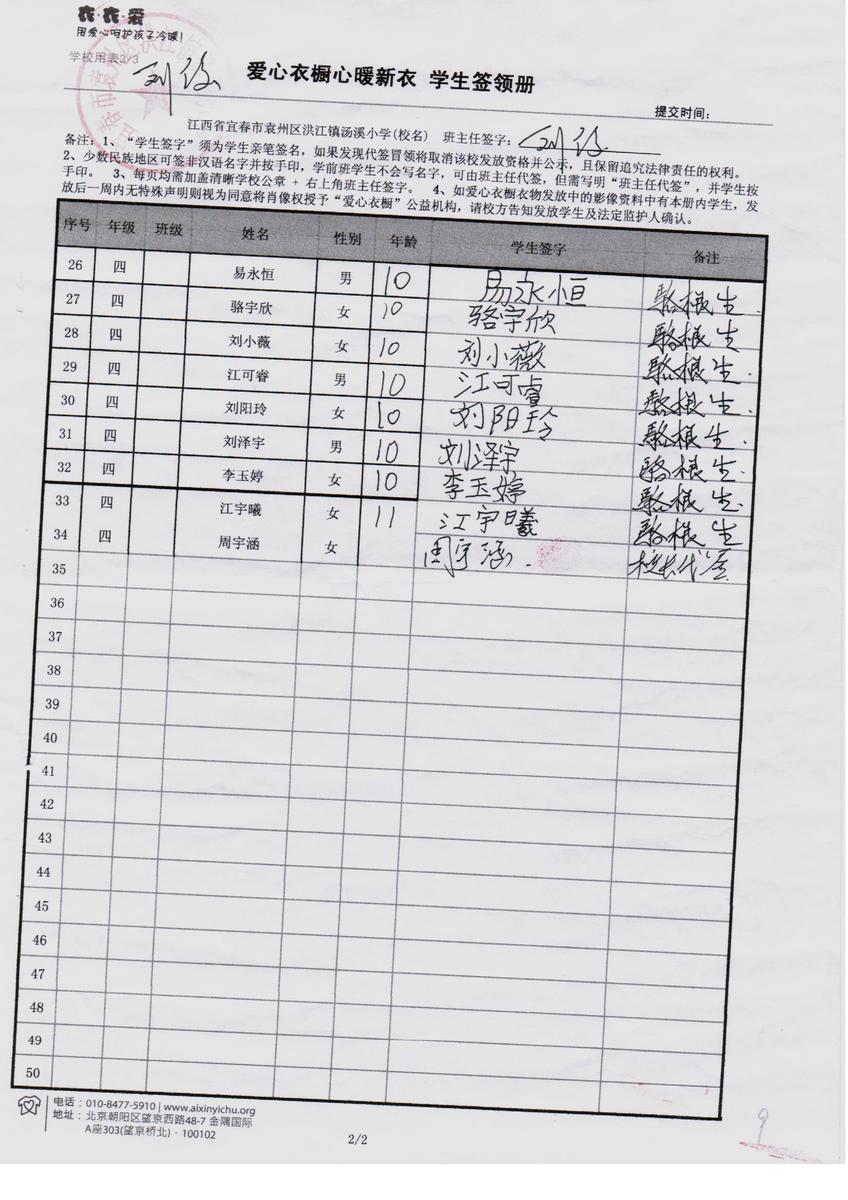 衣·衣·爱
用爱心呵护孩子冷暖!
学校用表3/3
爱心衣橱心暖新衣 学生签领册
提交时间:
江西省宜春市袁州区洪江镇汤溪小学(校名) 班主任签字:
备注:1、“学生签字”须为学生亲笔签名,如果发现代签冒领将取消该校发放资格并公示,且保留追究法律责任的权利。
2、少数民族地区可签非汉语名字并按手印,学前班学生不会写名字,可由班主任代签,但需写明“班主任代签”,并学生按
手印。 3、每页均需加盖清晰学校公章 + 右上角班主任签字。 4、如爱心衣橱衣物发放中的影像资料中有本册内学生,发
放后一周内无特殊声明则视为同意将肖像权授予“爱心衣橱”公益机构,请校方告知发放学生及法定监护人确认。
序号 年级 班级 姓名 性别 年龄 学生签字 备注
26 四 易永恒 男 10 易永恒 骆根生
27 四 骆宇欣 女 10 骆宇欣 骆根生
28 四 刘小薇 女 10 刘小薇 骆根生.
29 四 江可睿 男 10 江可睿 骆根生.
30 四 刘阳玲 女 10 刘阳玲 骆根生.
31 四 刘泽宇 男 10 刘泽宇 骆根生.
32 四 李玉婷 女 10 李玉婷 骆根生.
33 四 江宇曦 女 11 江宇曦 骆根生
34 四 周宇涵 女 周宇涵. 校长代签
35
36
37
38
39
40
41
42
43
44
45
46
47
48
49
50
电话:010-8477-5910 | www.aixinyichu.org
地址:北京朝阳区望京西路48-7 金隅国际
A座303(望京桥北)· 100102
2/2
9